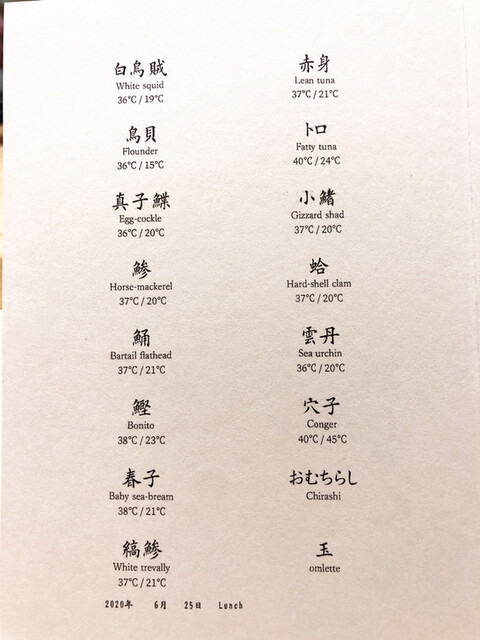 白烏賊
White squid
36℃ / 19℃
鳥貝
Flounder
36℃ / 15℃
真子鰈
Egg-cockle
36℃ / 20℃
鯵
Horse-mackerel
37℃ / 20℃
鯒
Bartail flathead
37℃ / 21℃
鰹
Bonito
38℃ / 23℃
春子
Baby sea-bream
38℃ / 21℃
縞鯵
White trevally
37℃ / 21℃
赤身
Lean tuna
37℃ / 21℃
トロ
Fatty tuna
40℃ / 24℃
小鰭
Gizzard shad
37℃ / 20℃
蛤
Hard-shell clam
37℃ / 20℃
雲丹
Sea urchin
36℃ / 20℃
穴子
Conger
40℃ / 45℃
おむちらし
Chirashi
玉
omlette
2020年 6月 25日 Lunch